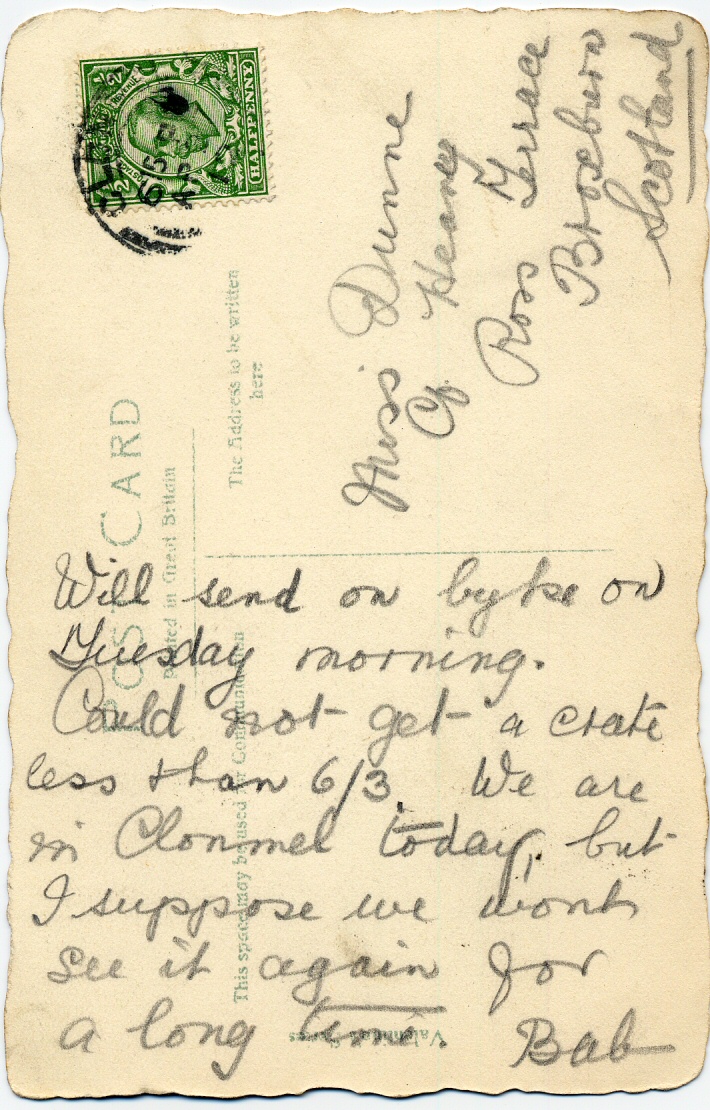 HALFPENNY
POST CARD
Printed in Great Britain
This space may be used for Communication
The Address to be written
here
Miss Dunne
C/o Heaney
Ross Terrace
Broxburn
Scotland
Will send on byke on
Tuesday morning.
Could not get a crate
less than 6/3. We are
in Clonmel today, but
I suppose we wont
see it again for
a long time. Bab